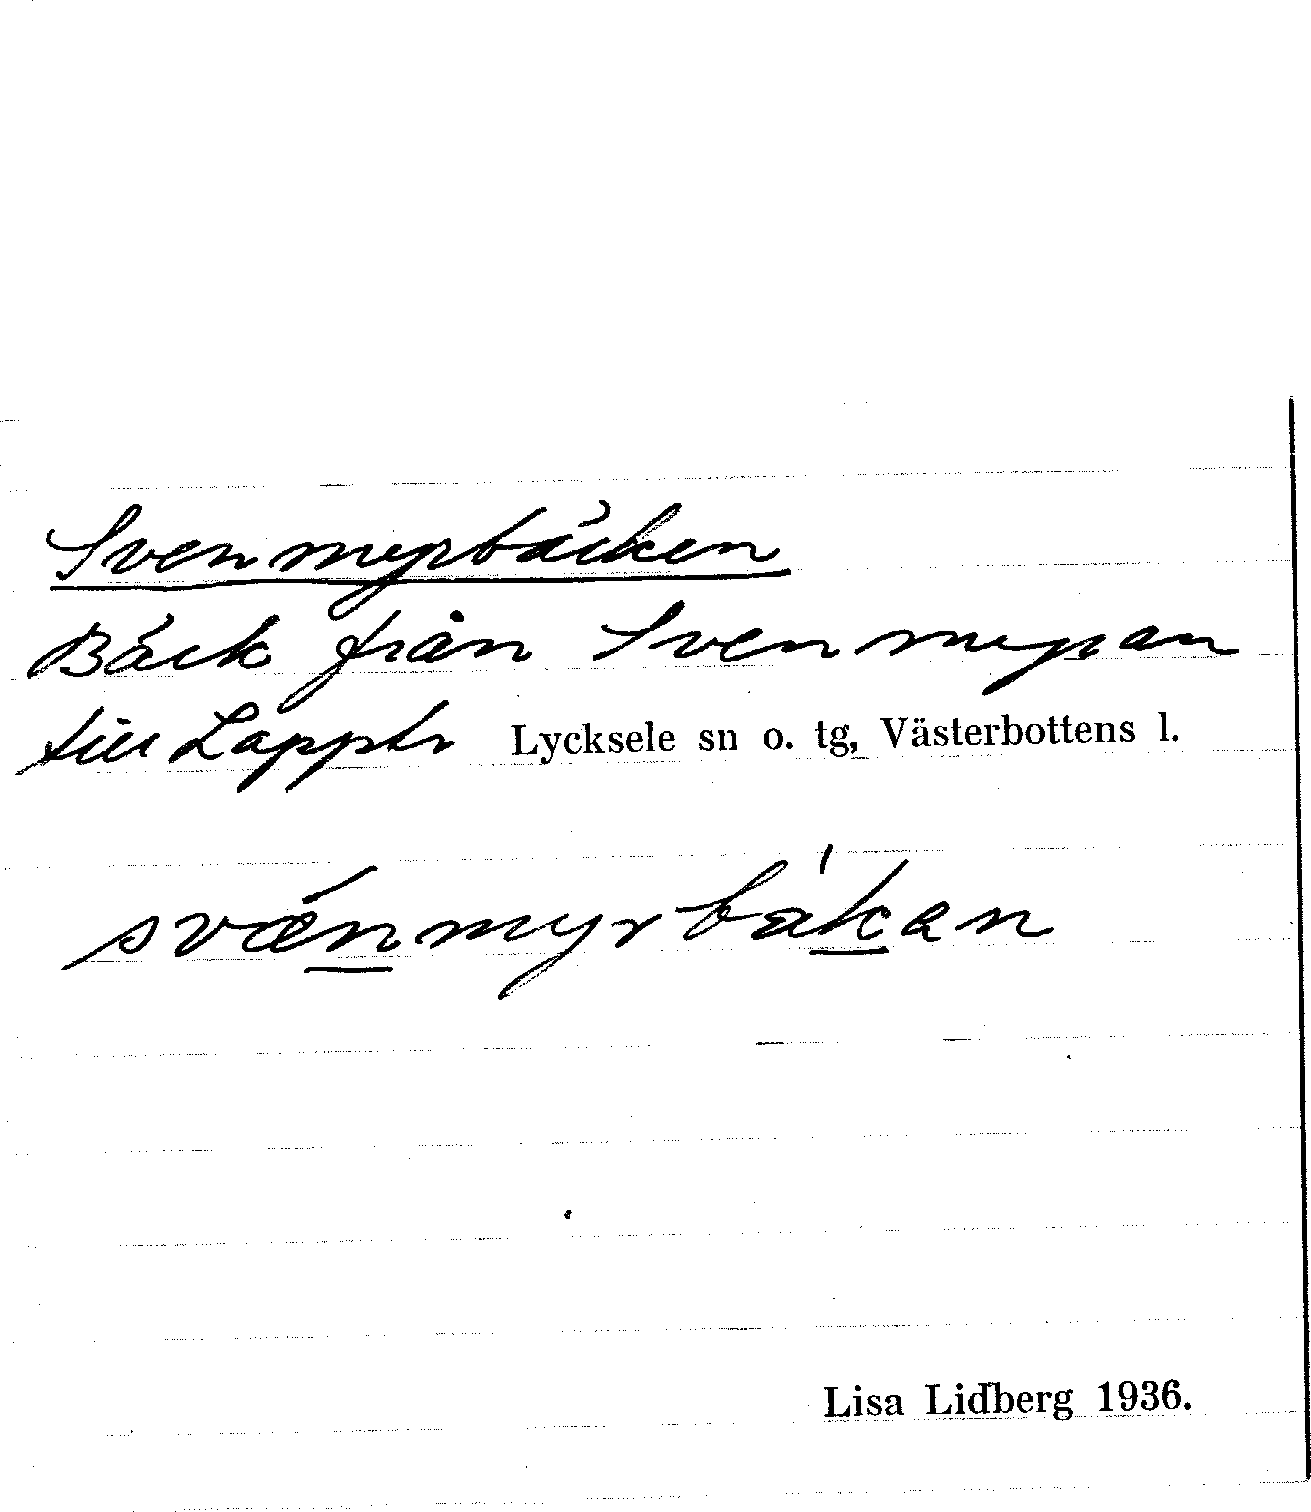 Svenmyrbäcken
Bäck från Svenmyran
till Lapptr Lycksele sn o. tg, Västerbottens l.
svænmyrbäkan
Lisa Lidberg 1936.